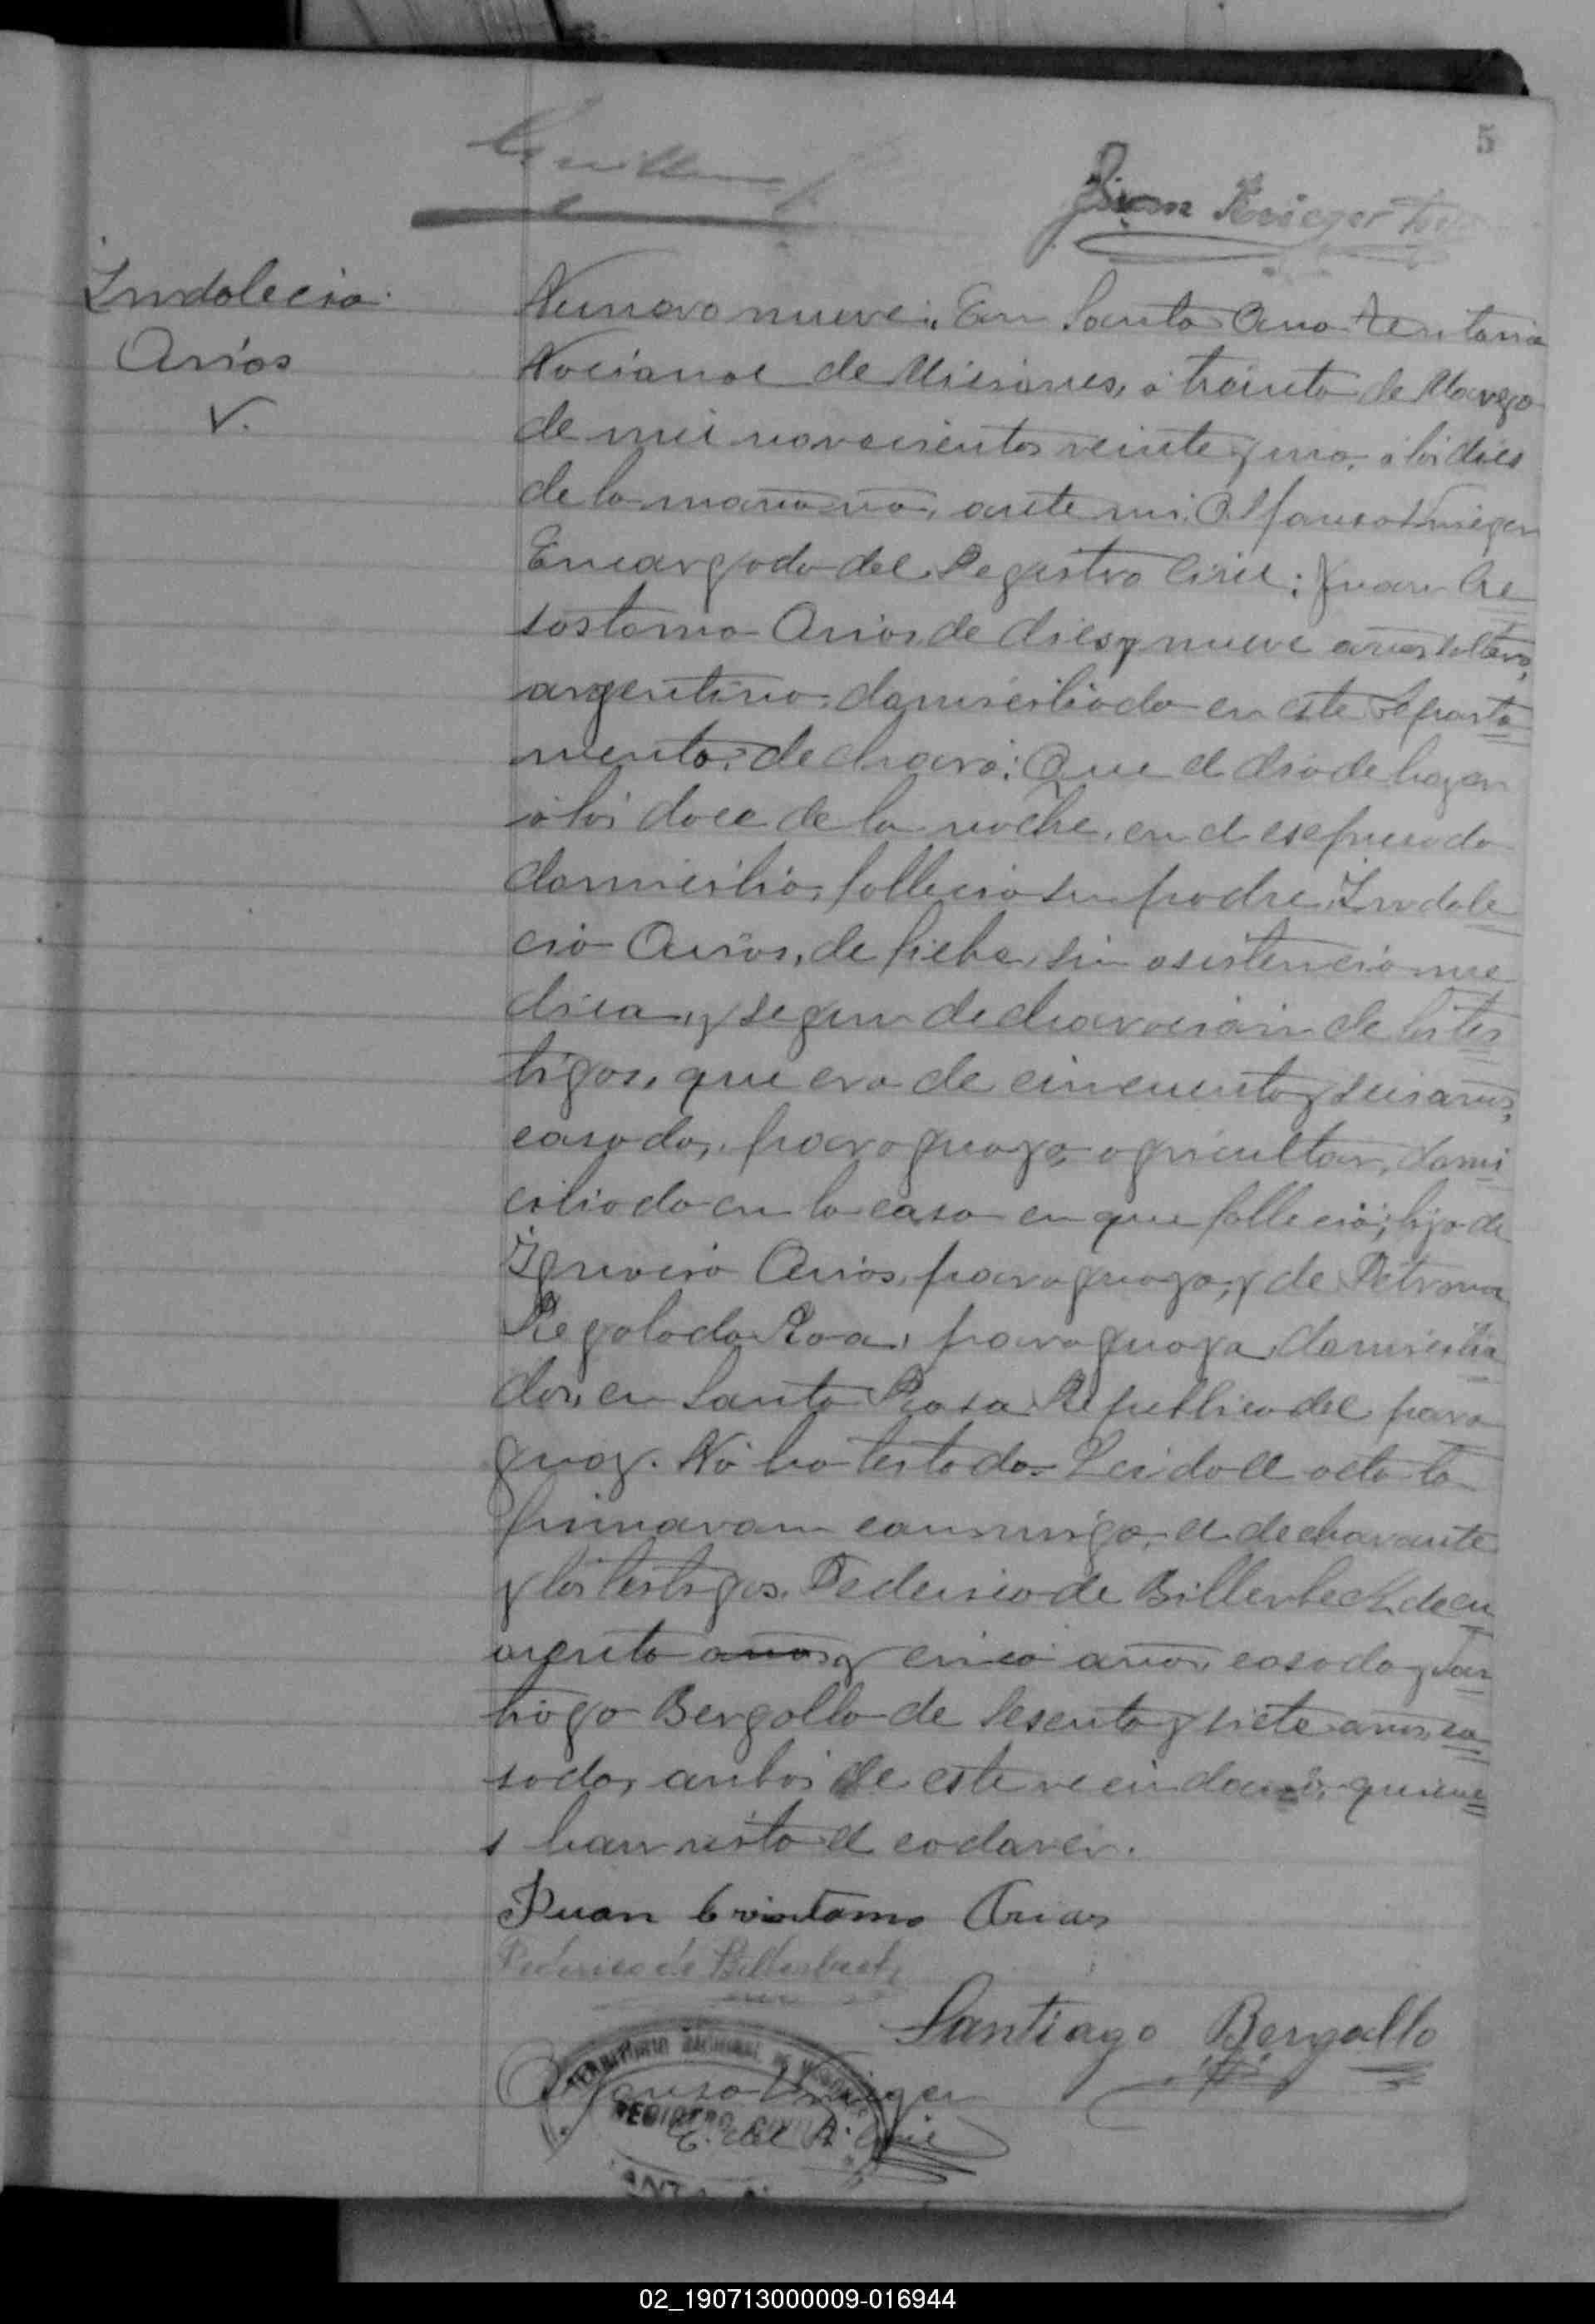 5
Guillermo
Indolecio
Arios
V.
Numero nueve: En Santa Ana Territorio
Nacional de Misiones, á treinta de Marzo
de mil novecientos veinte y uno, á las dies
de la mañana, ante mi, Alfonso Krieger
Encargado del Registro Civil; Juan Cre
sostomo Arios de dies y nueve años soltero,
argentino, domiciliado en este Departa
mento, declaró: Que el dia de hayer
á las doce de la noche, en el espresado
domicilio, fallecio su padre Indole
cio Arios, de fiebre, sin asistencia me
dica, y segun declaracion de los tes
tigos, que era de cincuenta y seis años,
casado, paraguayo, agricultor, domi
ciliado en la casa en que fallecio; hijo de
Ignacio Arios, paraguayo, y de Petrona
Regalada Roa, paraguaya domicilia
dos, en Santa Rosa Republica del para
guay. No ha testado. Leido el acta la
firmaron conmigo, el declarante
y los testigos, Federico de Billerbeck, de cu
arenta años y cinco años, casado y San
tiago Bergallo de sesenta y siete años, ca
sado, anbos de este vecindario, quiene
s han visto el cadaver.
Juan Crisostomo Arias
Federico de Billerbeck
Santiago Bergallo
Alfonso Krieger
E. del R. Civil
TERRITORIO NACIONAL DE MISIONES
REGISTRO CIVIL
02_190713000009-016944